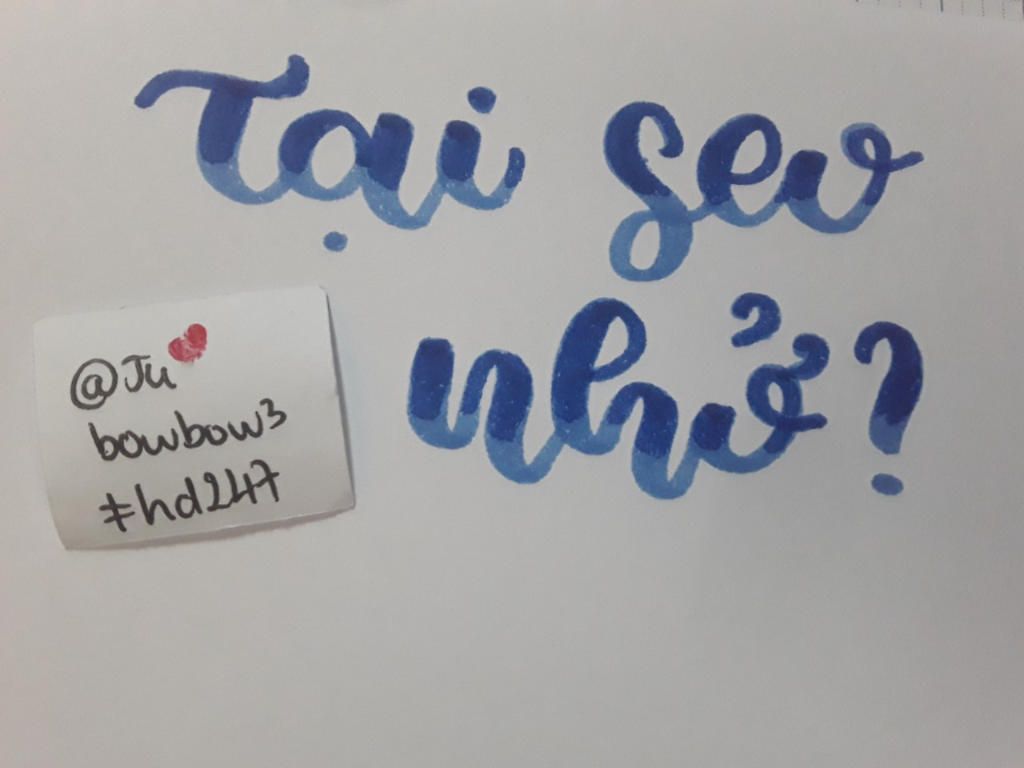 Tại sev
nhở?
@Ju
bowbow3
#hd247